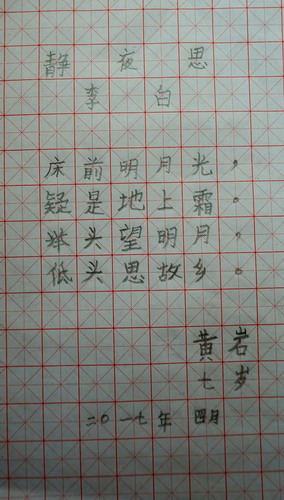 静夜思
李白
床前明月光，
疑是地上霜。
举头望明月，
低头思故乡。
黄岩
七岁
二〇一七年 四月